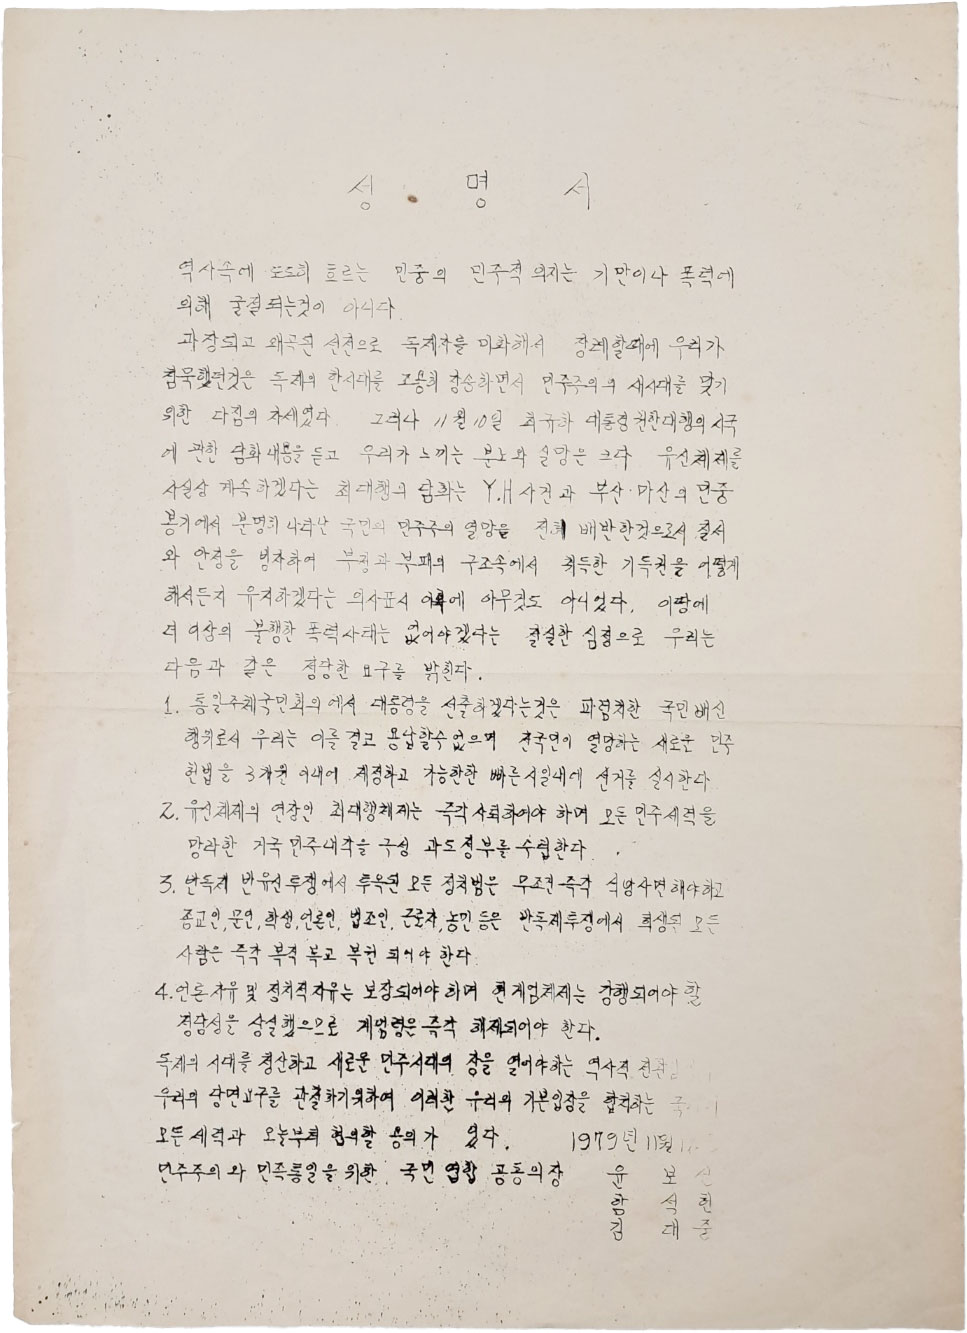 성 명 서
역사속에 도도히 흐르는 민중의 민주적 의지는 기만이나 폭력에
의해 굴절되는것이 아니다.
과장되고 왜곡된 선전으로 독재자를 미화해서 장례할때에 우리가
침묵했던것은 독재의 한시대를 조용히 장송하면서 민주주의의 새시대를 맞기
위한 다짐의 자세였다. 그러나 11월 10일 최규하 대통령권한대행의 시국
에 관한 담화내용을 듣고 우리가 느끼는 분노와 실망은 크다 유신체제를
사실상 계속하겠다는 최대행의 담화는 Y.H사건과 부산·마산의 민중
봉기에서 분명히 나타난 국민의 민주주의 열망을 전혀 배반한것으로서 질서
와 안정을 빙자하여 부정과 부패의 구조속에서 취득한 기득권을 어떻게
해서든지 유지하겠다는 의사표시 이외에 아무것도 아니었다. 이땅에
더 이상의 불행한 폭력사태는 없어야겠다는 절실한 심정으로 우리는
다음과 같은 정당한 요구를 밝힌다.
1. 통일주체국민회의에서 대통령을 선출하겠다는것은 파렴치한 국민배신
행위로서 우리는 이를 결코 용납할수없으며 전국민이 열망하는 새로운 민주
헌법을 3개월 이내에 제정하고 가능한한 빠른시일내에 선거를 실시한다
2. 유신체제의 연장인 최대행체제는 즉각사퇴하여야 하며 모든민주세력을
망라한 거국민주내각을 구성 과도정부를 수립한다.
3. 반독재 반유신투쟁에서 투옥된 모든 정치범은 무조건 즉각 석방사면해야하고
종교인, 문인, 학생, 언론인, 법조인, 근로자, 농민 등은 반독재투쟁에서 희생된 모든
사람은 즉각 복직 복교 복권 되어야 한다
4. 언론자유 및 정치적자유는 보장되어야 하며 현계엄체제는 강행되어야 할
정당성을 상실했으므로 계엄령은 즉각 해제되어야 한다.
독재의 시대를 청산하고 새로운 민주시대의 장을 열어야하는 역사적 전환
우리의 당면요구를 관철하기위하여 이러한 우리의 기본입장을 합치하는
모든 세력과 오늘부터 협의할 용의가 있다. 1979년 11월
민주주의와 민족통일을 위한 국민연합 공동의장 윤 보 선
함 석 헌
김 대 중